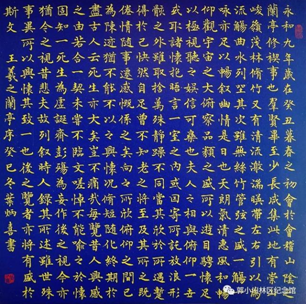 永和九年歲在癸丑暮春之初會于會稽山陰之
蘭亭修稧事也群賢畢至少長咸集此地有崇山
峻嶺茂林脩竹又有清流激湍暎帶左右引以為
流觴曲水列坐其次雖無絲竹管弦之盛一觴一
詠亦足以暢敘幽情是日也天朗氣清惠風和暢
仰觀宇宙之大俯察品類之盛所以遊目騁懷足
以極視聽之娛信可樂也夫人之相與俯仰一世
或取諸懷抱悟言一室之內或因寄所託放浪形
骸之外雖取舍萬殊靜躁不同當其欣於所遇暫
得於己快然自足不知老之將至及其所之既惓
情隨事遷感慨係之矣向之所欣俛仰之間以
為陳迹猶不能不以之興懷況脩短隨化終期於
盡古人云死生亦大矣豈不痛哉每覽昔人興感
之由若合一契未嘗不臨文嗟悼不能喻之於懷
固知一死生為虛誕齊彭殤為妄作後之視今亦
猶今之視昔悲夫故列敘時人錄其所述雖世殊
事異所以興懷其致一也後之覽者亦將有感於
斯文 王羲之蘭亭序 癸巳冬葉炳喜書
郭小彬林区纪念馆